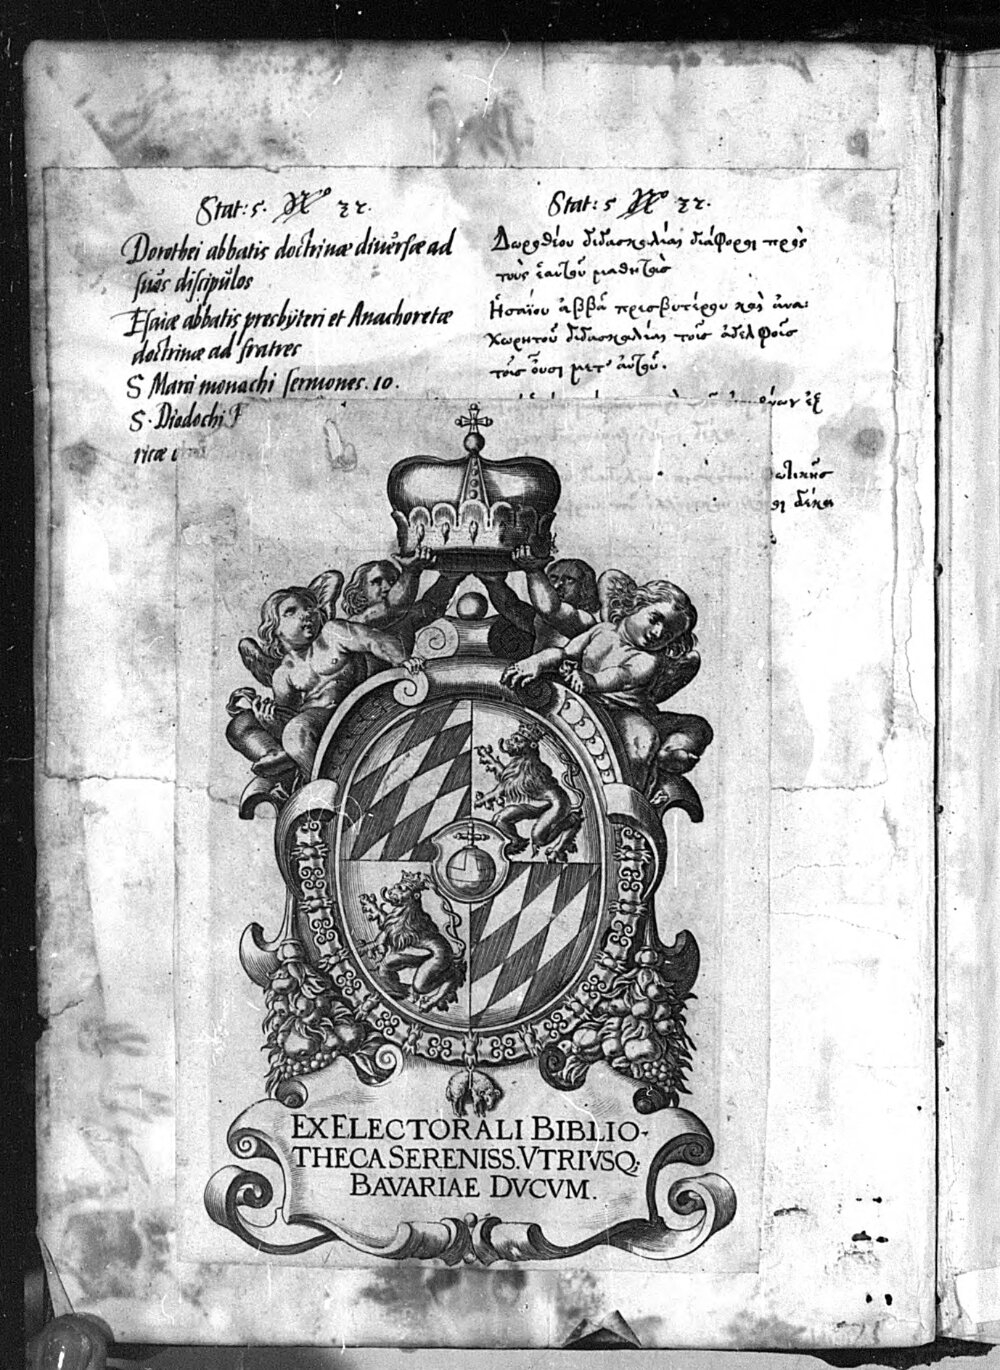 Stat: 5. No 32.
Dorothei abbatis doctrinæ diuersæ ad
suos discipulos
Esaiæ abbatis presbyteri et Anachoretæ
doctrinæ ad fratres
S Marci monachi sermones. 10.
S. Diadochi
ricæ
Stat: 5 No 32.
Δωροθέου διδασκαλίαι διάφοροι πρὸς
τοὺς ἑαυτοῦ μαθητὰς
Ἡσαΐου ἀββᾶ πρεσβυτέρου καὶ ἀνα:
χωρητοῦ διδασκαλίαι τοῖς ἀδελφοῖς
τοῖς οὖσι μετ' αὐτοῦ.
ἐξ
ωτικῆς
οι δέκα
EX ELECTORALI BIBLIO-
THECA SERENISS. VTRIVSQ;
BAVARIAE DVCVM.